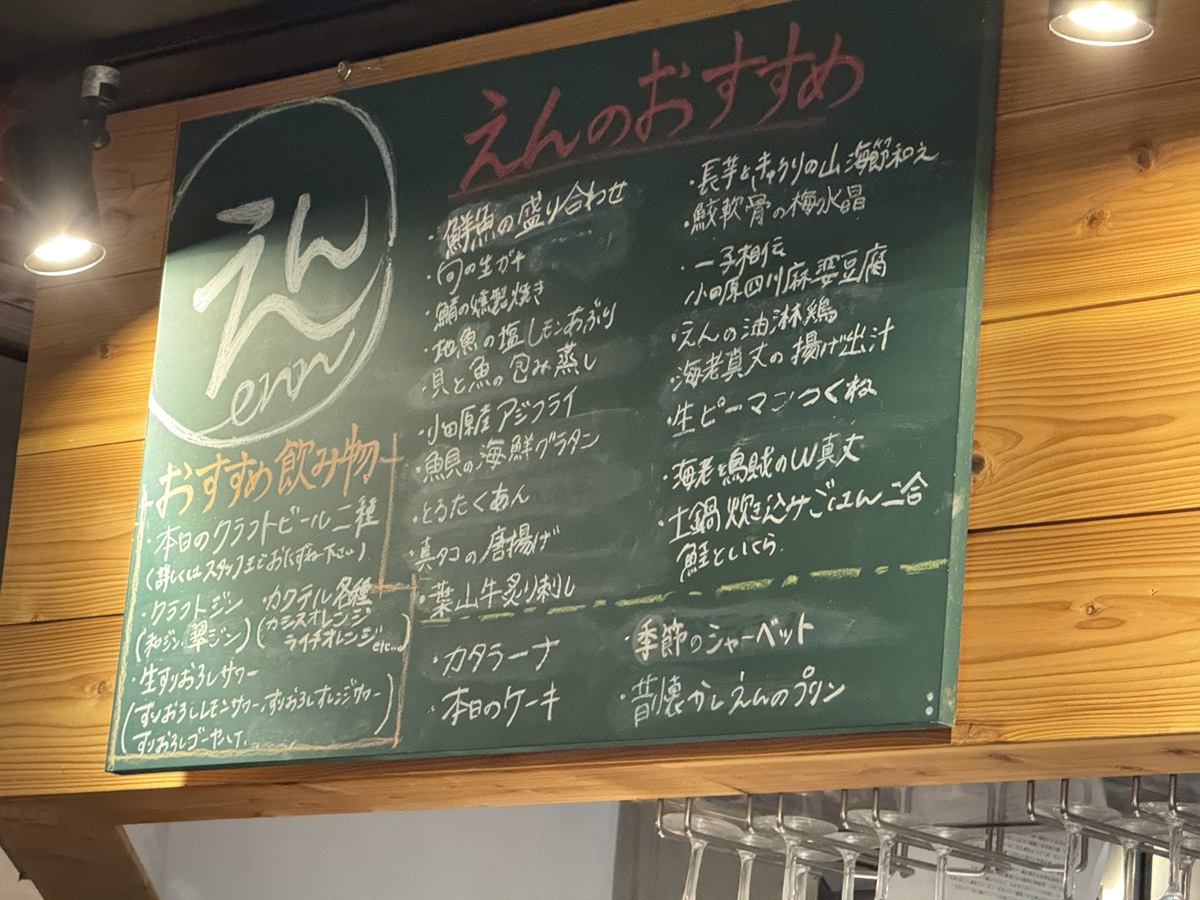 えん
enn
えんのおすすめ
・鮮魚の盛り合わせ
・旬の生ガキ
・鯖の燻製焼き
・地魚の塩レモンあぶり
・貝と魚の包み蒸し
・小田原産アジフライ
・魚貝の海鮮グラタン
・とろたくあん
・真タコの唐揚げ
・葉山牛炙り刺し
・長芋ときゅうりの山海節和え
・鮫軟骨の梅水晶
・一子相伝
小田原四川麻婆豆腐
・えんの油淋鶏
・海老真丈の揚げ出汁
・生ピーマンつくね
・海老と烏賊のW真丈
・土鍋炊き込みごはん二合
鮭といくら
・カタラーナ
・本日のケーキ
・季節のシャーベット
・昔懐かしえんのプリン
おすすめ飲み物
・本日のクラフトビール二種
(詳しくはスタッフまでおたずね下さい)
・クラフトジン
(和ジン、翠ジン)
・カクテル各種
(カシスオレンジ
ライチオレンジetc...)
・生すりおろしサワー
(すりおろしレモンサワー、すりおろしオレンジサワー
すりおろしゴーヤハイ)